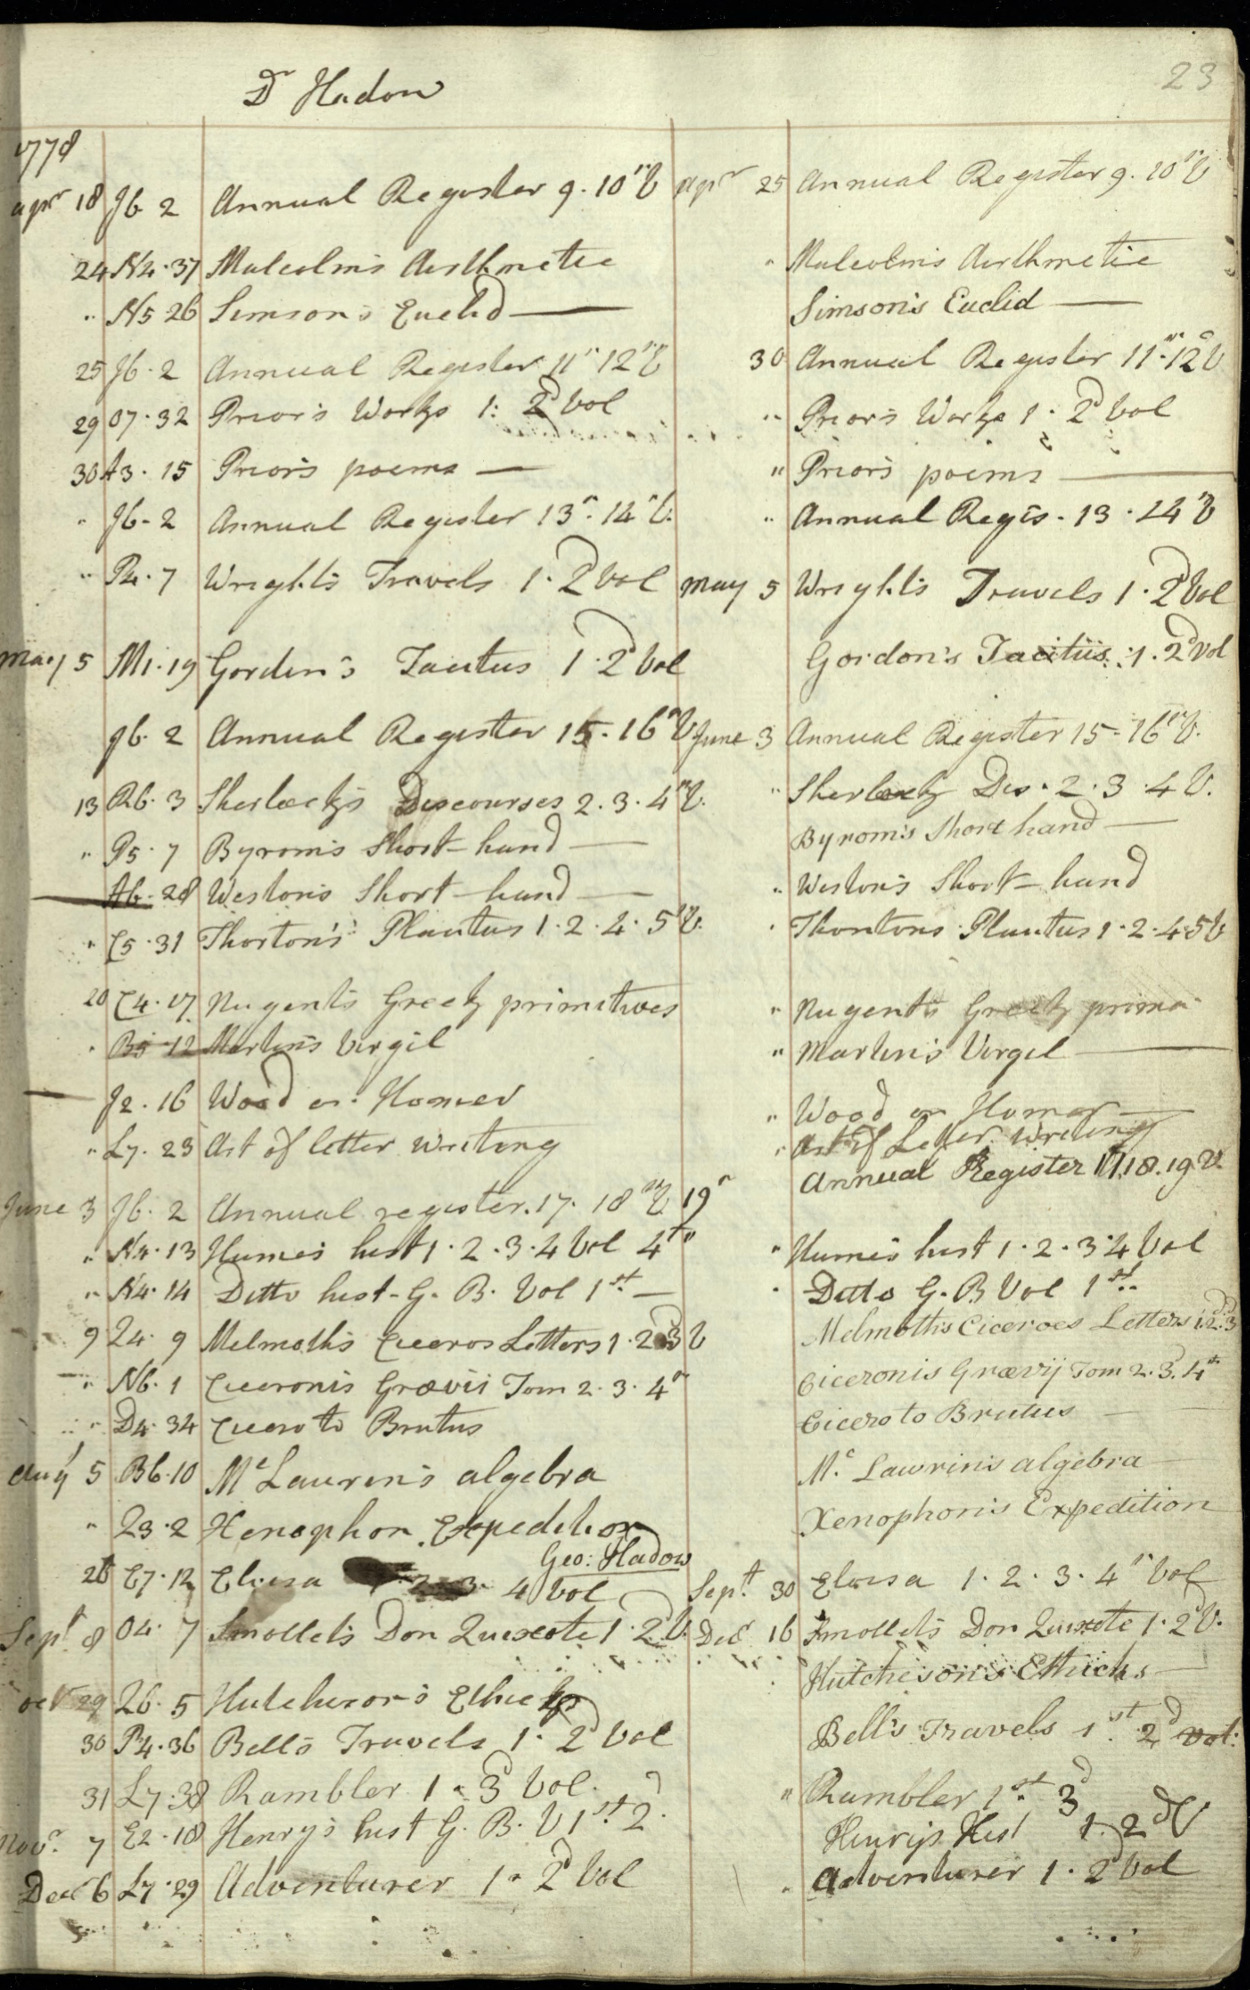 23
Dr Hadow
1778
apr 18 J6. 2 Annual Register 9. 10th V apr 25 Annual Register 9. 10th V
24 N4. 37 Malcolm's Arithmetic " Malcolm's Arithmetic
" N5 26 Simson's Euclid — Simson's Euclid —
25 J6. 2 Annual Register 11th 12th V 30 Annual Register 11th 12th V
29 O7. 32 Prior's Works 1. 2d Vol " Prior's Works 1. 2d Vol
30 A3. 15 Prior's poems — " Prior's poems —
" J6. 2 Annual Register 13th. 14th V. " Annual Regis. 13. 14th V
" P4. 7 Wright's Travels 1. 2d Vol may 5 Wright's Travels 1. 2d Vol
may 5 M1. 19 Gordon's Tacitus 1. 2d Vol Gordon's Tacitus. 1. 2d Vol
J6. 2 Annual Register 15. 16th V June 3 Annual Register 15. 16th V.
13 R6. 3 Sherlock's Discourses 2. 3. 4th V. " Sherlock Dis. 2. 3. 4 V.
" P5. 7 Byrom's Short-hand — Byrom's Short hand —
A6. 28 Weston's Short-hand — " Weston's Short-hand
" C5. 31 Thorton's Plautus 1. 2. 4. 5th V. " Thorntons Plautus 1. 2. 4. 5 V
20 C4. 17 Nugent's Greek primitives " Nugent's Greek prim
" B5 12 Martin's Virgil " Martin's Virgil —
J2. 16 Wood on Homer " Wood on Homer —
" L7. 23 Art of letter writing " Art of Letter writing
Annual Register 17. 18. 19 V.
June 3 J6. 2 Annual register. 17. 18th V 19th
" N4. 13 Hume's hist 1. 2. 3. 4 Vol 4to " Hume's hist 1. 2. 3. 4 Vol
" N4. 14 Ditto hist. G. B. Vol 1st — " Ditto G. B Vol 1st
9 Z4. 9 Melmoth's Ciceros Letters 1. 2 3 V Melmoth's Ciceroes Letters 1. 2. 3
" N6. 1 Ciceronis Grævii Tom 2. 3. 4th Ciceronis Grævij Tom 2. 3. 4th
" D4. 34 Cicero to Brutus Cicero to Brutus —
Augt 5 B6. 10 Mc Laurin's algebra Mc. Lawrin's algebra —
" Z3. 2 Xenophon Expedition Xenophon's Expedition
Geo: Hadow
26 C7. 12 Eloisa 2. 3. 4 Vol Sept. 30 Eloisa 1. 2. 3. 4th Vol
Sept. 8 O4. 7 Smollet's Don Quixote 1. 2d V. Decr 16 Smollet's Don Quixote 1. 2d V.
oct 29 Z6. 5 Hutcheson's Ethicks Hutcheson's Ethicks —
30 P4. 36 Bell's Travels 1. 2d Vol Bell's Travels 1st. 2d Vol:
31 L7. 38 Rambler 1. 3d Vol. " Rambler 1st. 3d
Novr. 7 E2. 18 Henry's hist G. B. V 1st. 2d. Henry's Hist 1. 2d V
Decr 6 L7. 29 Adventurer 1. 2d Vol " Adventurer 1. 2d Vol